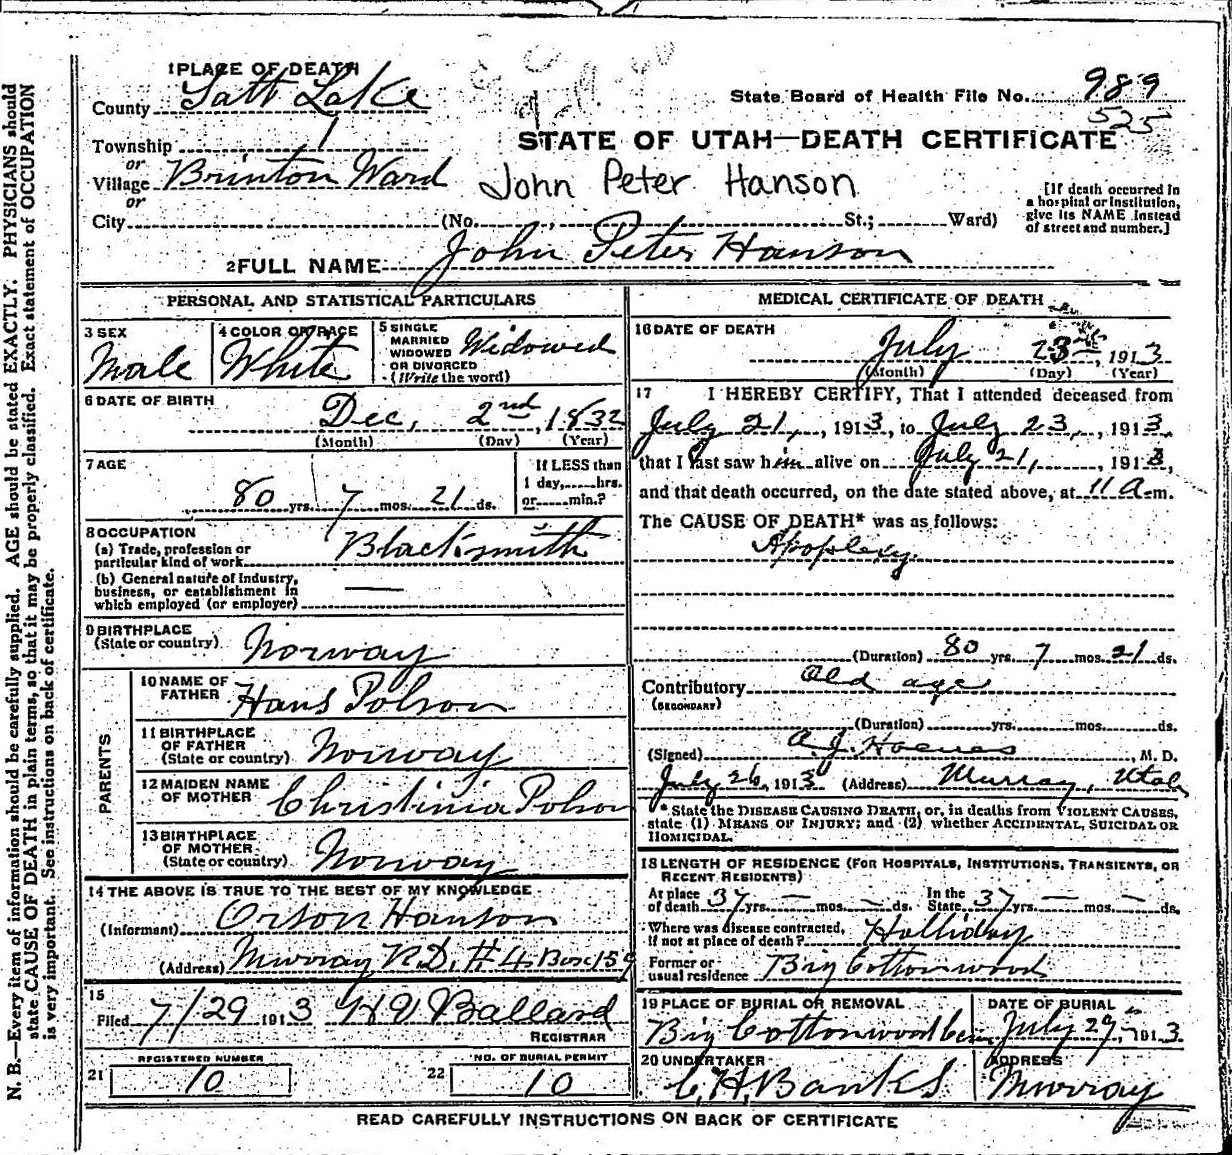 1 PLACE OF DEATH
County Salt Lake
State Board of Health File No. 989
525
Township 1
or
STATE OF UTAH—DEATH CERTIFICATE
Village Brinton Ward
or
John Peter Hanson
City (No. St.; Ward)
[If death occurred in
a hospital or institution,
give its NAME instead
of street and number.]
2 FULL NAME John Peter Hanson
PERSONAL AND STATISTICAL PARTICULARS
3 SEX
Male
4 COLOR OR RACE
White
5 SINGLE
MARRIED
WIDOWED
OR DIVORCED
(Write the word)
Widowed
6 DATE OF BIRTH
Dec, 2nd, 1832
(Month) (Day) (Year)
7 AGE
80 yrs. 7 mos. 21 ds.
If LESS than
1 day, hrs.
or min.?
8 OCCUPATION
(a) Trade, profession or
particular kind of work Blacksmith
(b) General nature of Industry,
business, or establishment in
which employed (or employer) —
9 BIRTHPLACE
(State or country) Norway
PARENTS
10 NAME OF
FATHER Hans Polson
11 BIRTHPLACE
OF FATHER
(State or country) Norway
12 MAIDEN NAME
OF MOTHER Christinia Polson
13 BIRTHPLACE
OF MOTHER
(State or country) Norway
14 THE ABOVE IS TRUE TO THE BEST OF MY KNOWLEDGE
(Informant) Orson Hanson
(Address) Murray R.D. #4 Box 159
15
Filed 7/29 1913 Ballard
REGISTRAR
REGISTERED NUMBER
21 10
NO. OF BURIAL PERMIT
22 10
MEDICAL CERTIFICATE OF DEATH
16 DATE OF DEATH
July 23, 1913
(Month) (Day) (Year)
17 I HEREBY CERTIFY, That I attended deceased from
July 21, 1913, to July 23, 1913,
that I last saw him alive on July 21, 1913,
and that death occurred, on the date stated above, at 11 a m.
The CAUSE OF DEATH* was as follows:
Apoplexy.
(Duration) 80 yrs. 7 mos. 21 ds.
Contributory Old age
(SECONDARY)
(Duration) yrs. mos. ds.
(Signed) A.J. , M. D.
July 26, 1913 (Address) Murray, Utah
* State the DISEASE CAUSING DEATH, or, in deaths from VIOLENT CAUSES,
state (1) MEANS OF INJURY; and (2) whether ACCIDENTAL, SUICIDAL OR
HOMICIDAL.
18 LENGTH OF RESIDENCE (FOR HOSPITALS, INSTITUTIONS, TRANSIENTS, OR
RECENT RESIDENTS)
At place
of death 37 yrs. — mos. — ds. In the
State 37 yrs. — mos. — ds.
Where was disease contracted,
If not at place of death? Holliday
Former or
usual residence Big Cottonwood
19 PLACE OF BURIAL OR REMOVAL
Big Cottonwood Cem
DATE OF BURIAL
July 27, 1913.
20 UNDERTAKER
C.H. Banks
ADDRESS
Murray
READ CAREFULLY INSTRUCTIONS ON BACK OF CERTIFICATE
N. B.—Every item of information should be carefully supplied. AGE should be stated EXACTLY. PHYSICIANS should
state CAUSE OF DEATH in plain terms, so that it may be properly classified. Exact statement of OCCUPATION
is very important. See instructions on back of certificate.